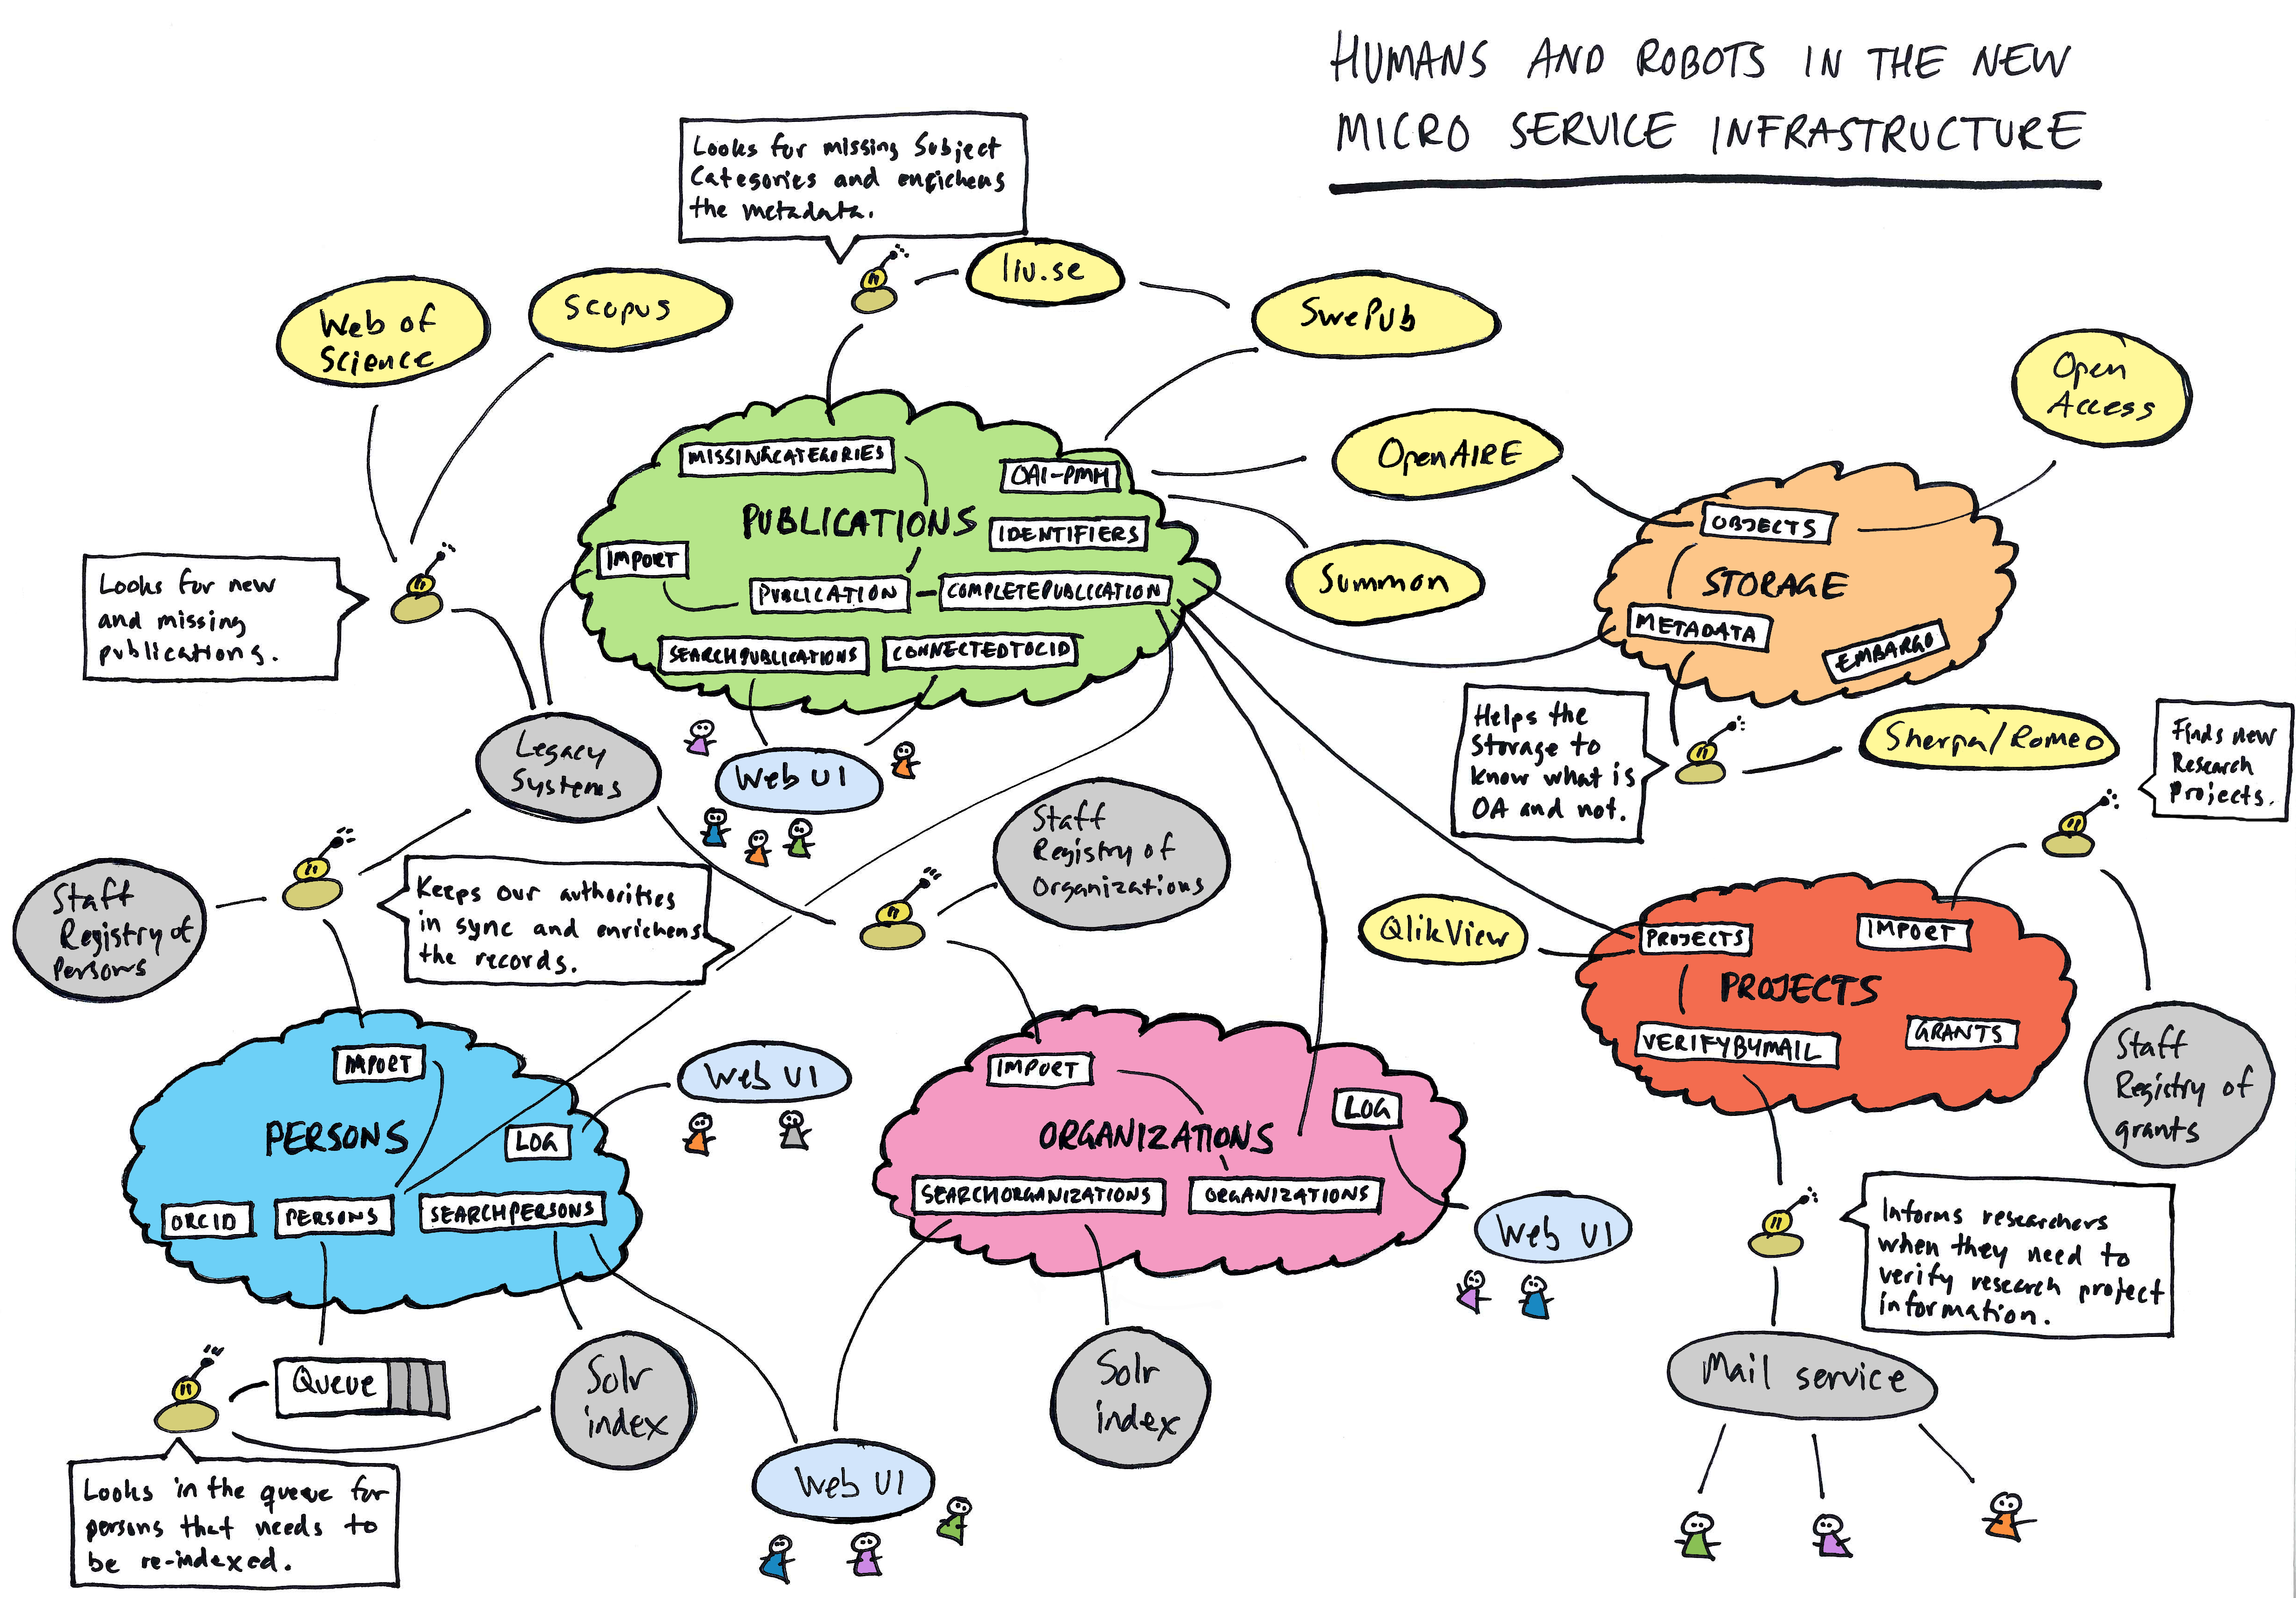 HUMANS AND ROBOTS IN THE NEW
MICRO SERVICE INFRASTRUCTURE
Looks for missing Subject
Categories and enrichens
the metadata.
liu.se
SwePub
Web of
Science
Scopus
Open
Access
OpenAIRE
Summon
MISSINGCATEGORIES
OAI-PMH
PUBLICATIONS
IDENTIFIERS
IMPORT
PUBLICATION
COMPLETEPUBLICATION
SEARCHPUBLICATIONS
CONNECTEDTOCID
OBJECTS
STORAGE
METADATA
EMBARGO
Looks for new
and missing
publications.
Legacy
Systems
Web UI
Helps the
Storage to
know what is
OA and not.
Sherpa/Romeo
Finds new
Research
Projects.
Staff
Registry of
Persons
Keeps our authorities
in sync and enrichens
the records.
Staff
Registry of
Organizations
QlikView
PROJECTS
IMPORT
PROJECTS
VERIFYBYMAIL
GRANTS
Staff
Registry of
grants
IMPORT
PERSONS
LOG
ORCID
PERSONS
SEARCHPERSONS
Web UI
IMPORT
LOG
ORGANIZATIONS
SEARCHORGANIZATIONS
ORGANIZATIONS
Web UI
Informs researchers
when they need to
verify research project
information.
Queue
Solr
index
Solr
index
Mail service
Web UI
Looks in the queue for
persons that needs to
be re-indexed.